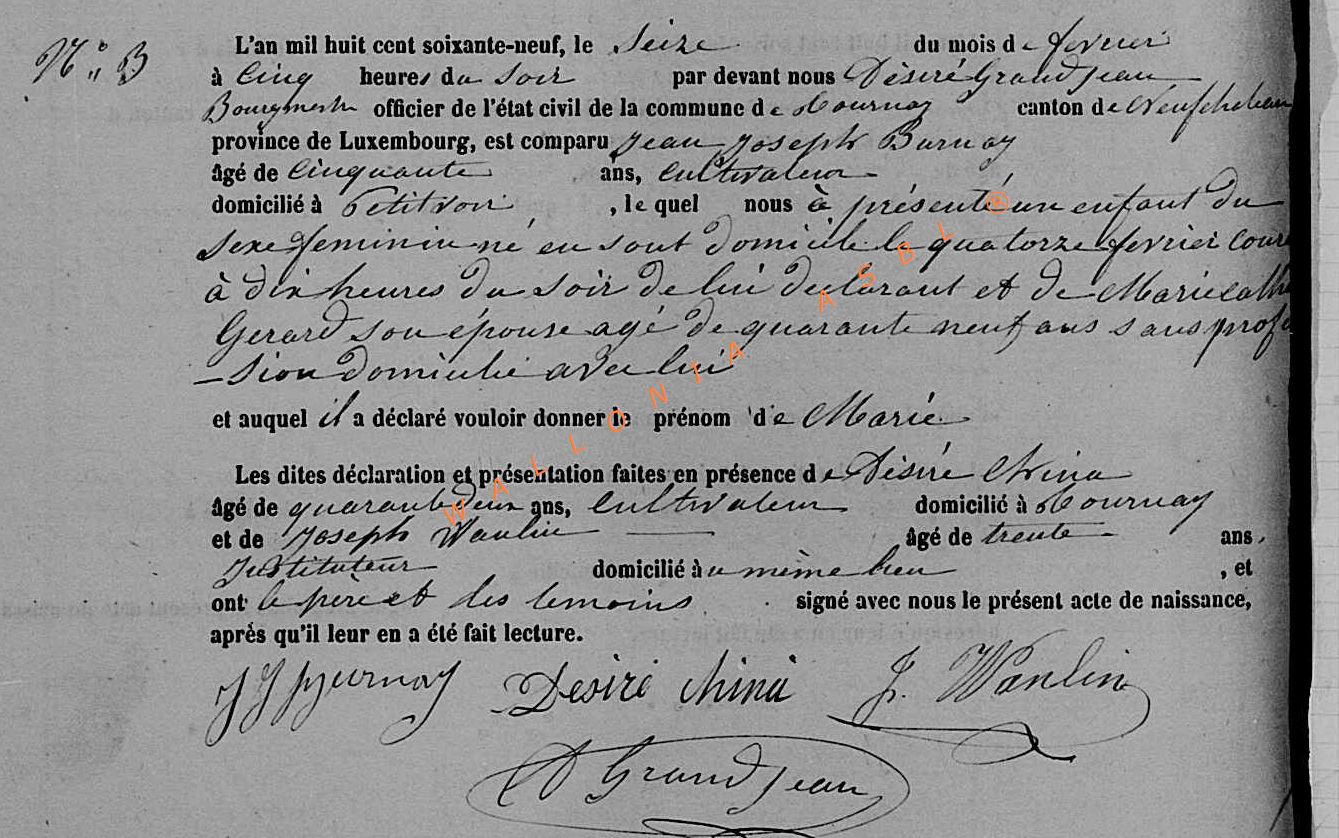 N° 3
L'an mil huit cent soixante-neuf, le Seize du mois de fevrier
à Cinq heures du soir par devant nous Dèsiré Grandjean
Bourgmestre officier de l'état civil de la commune de Tournay canton de Neufchateau
province de Luxembourg, est comparu Jean Joseph Burnay
âgé de Cinquante ans, Cultivateur
domicilié à Petitvoir, le quel nous à présenté un enfant du
sexe feminin né en sont domicile le quatorze fevrier cour
à dix heures du soir de lui declarant et de Marie cathe
Gerard son épouse agé de quarante neuf ans sans profe
-sion domicilié avec lui
et auquel il a déclaré vouloir donner le prénom de Marie
Les dites déclaration et présentation faites en présence de Dèsiré China
âgé de quarante deux ans, Cultivateur domicilié à Tournay
et de Joseph Wanlin âgé de trente ans,
Instituteur domicilié au même lieu, et
ont le père et les temoins signé avec nous le présent acte de naissance,
après qu'il leur en a été fait lecture.
JJ Burnay Desiré China J. Wanlin
D Grandjean
WALLONIA ASBL ®